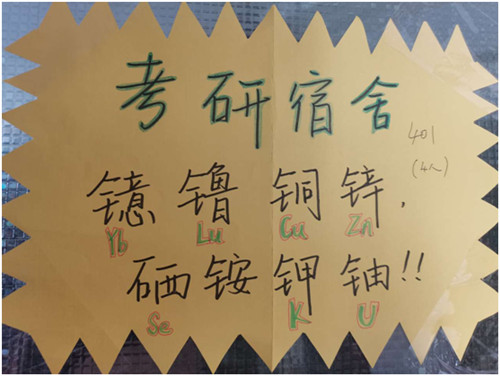 考研宿舍
401
(4人)
镱镥铜锌，
Yb Lu Cu Zn
硒铵钾铀!!
Se K U